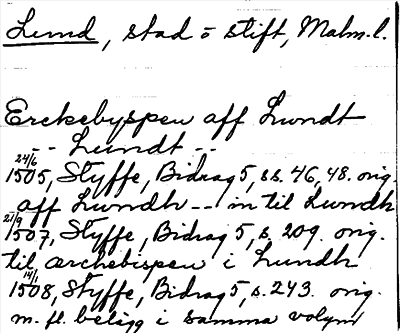 Lund, stad o stift, Malm. l.
Erckebyspen aff Lundt
-- Lundt --
24/6
1505, Styffe, Bidrag 5, s.s. 46, 48. orig.
aff Lundh -- in til Lundh
21/9
1507, Styffe, Bidrag 5, s. 209. orig.
til ærchebispen i Lundh
14/1
1508, Styffe, Bidrag 5, s. 243. orig.
m. fl. belägg i samma volym